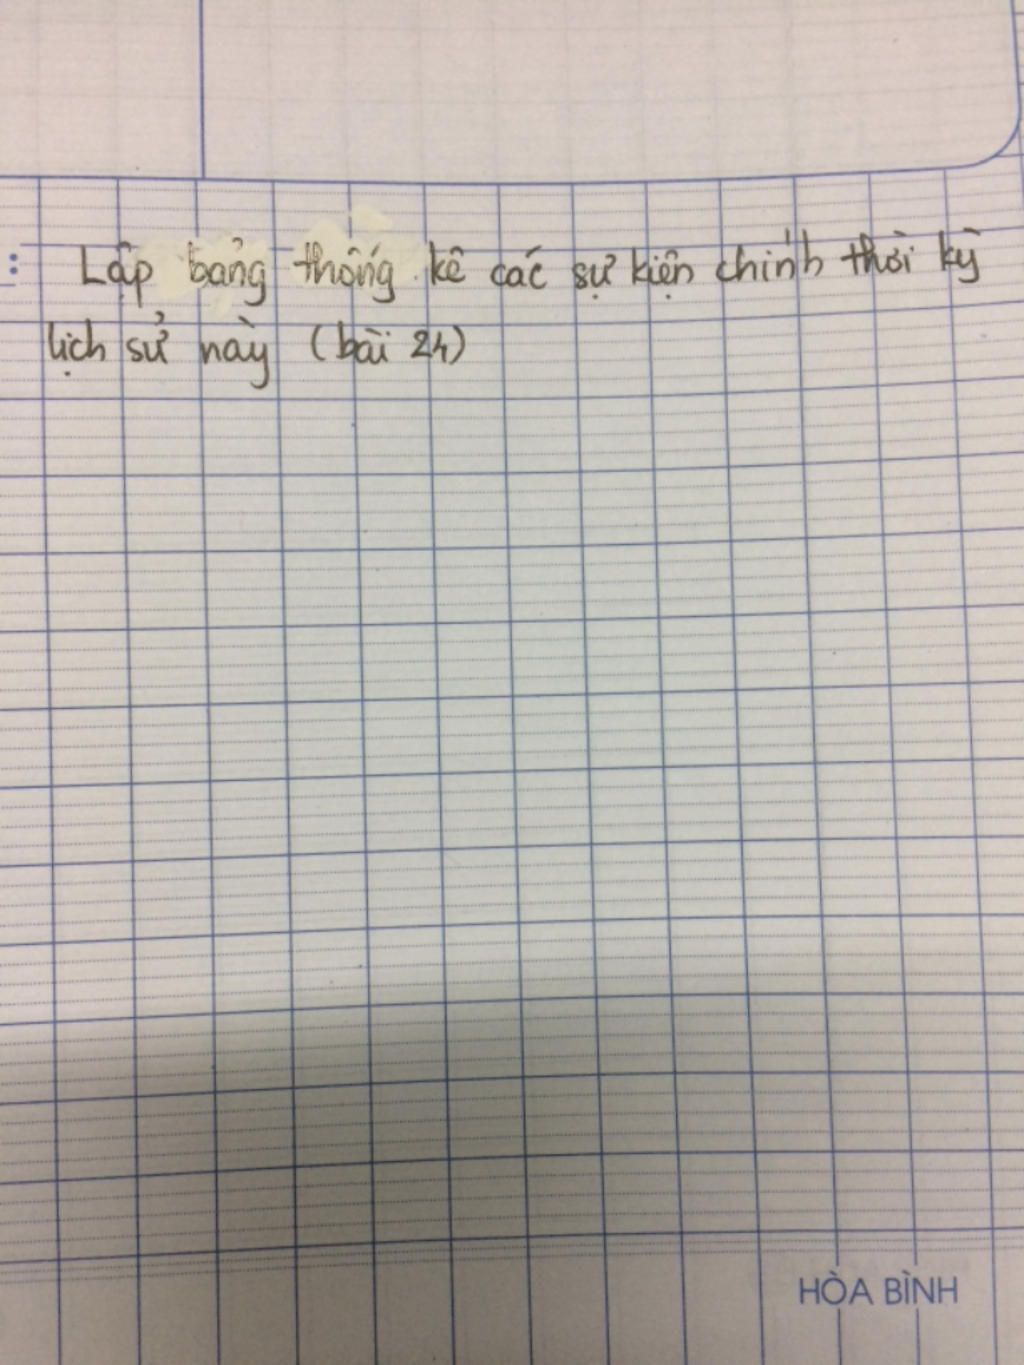 : Lập bảng thống kê các sự kiện chính thời kỳ
lịch sử này (bài 24)
HÒA BÌNH